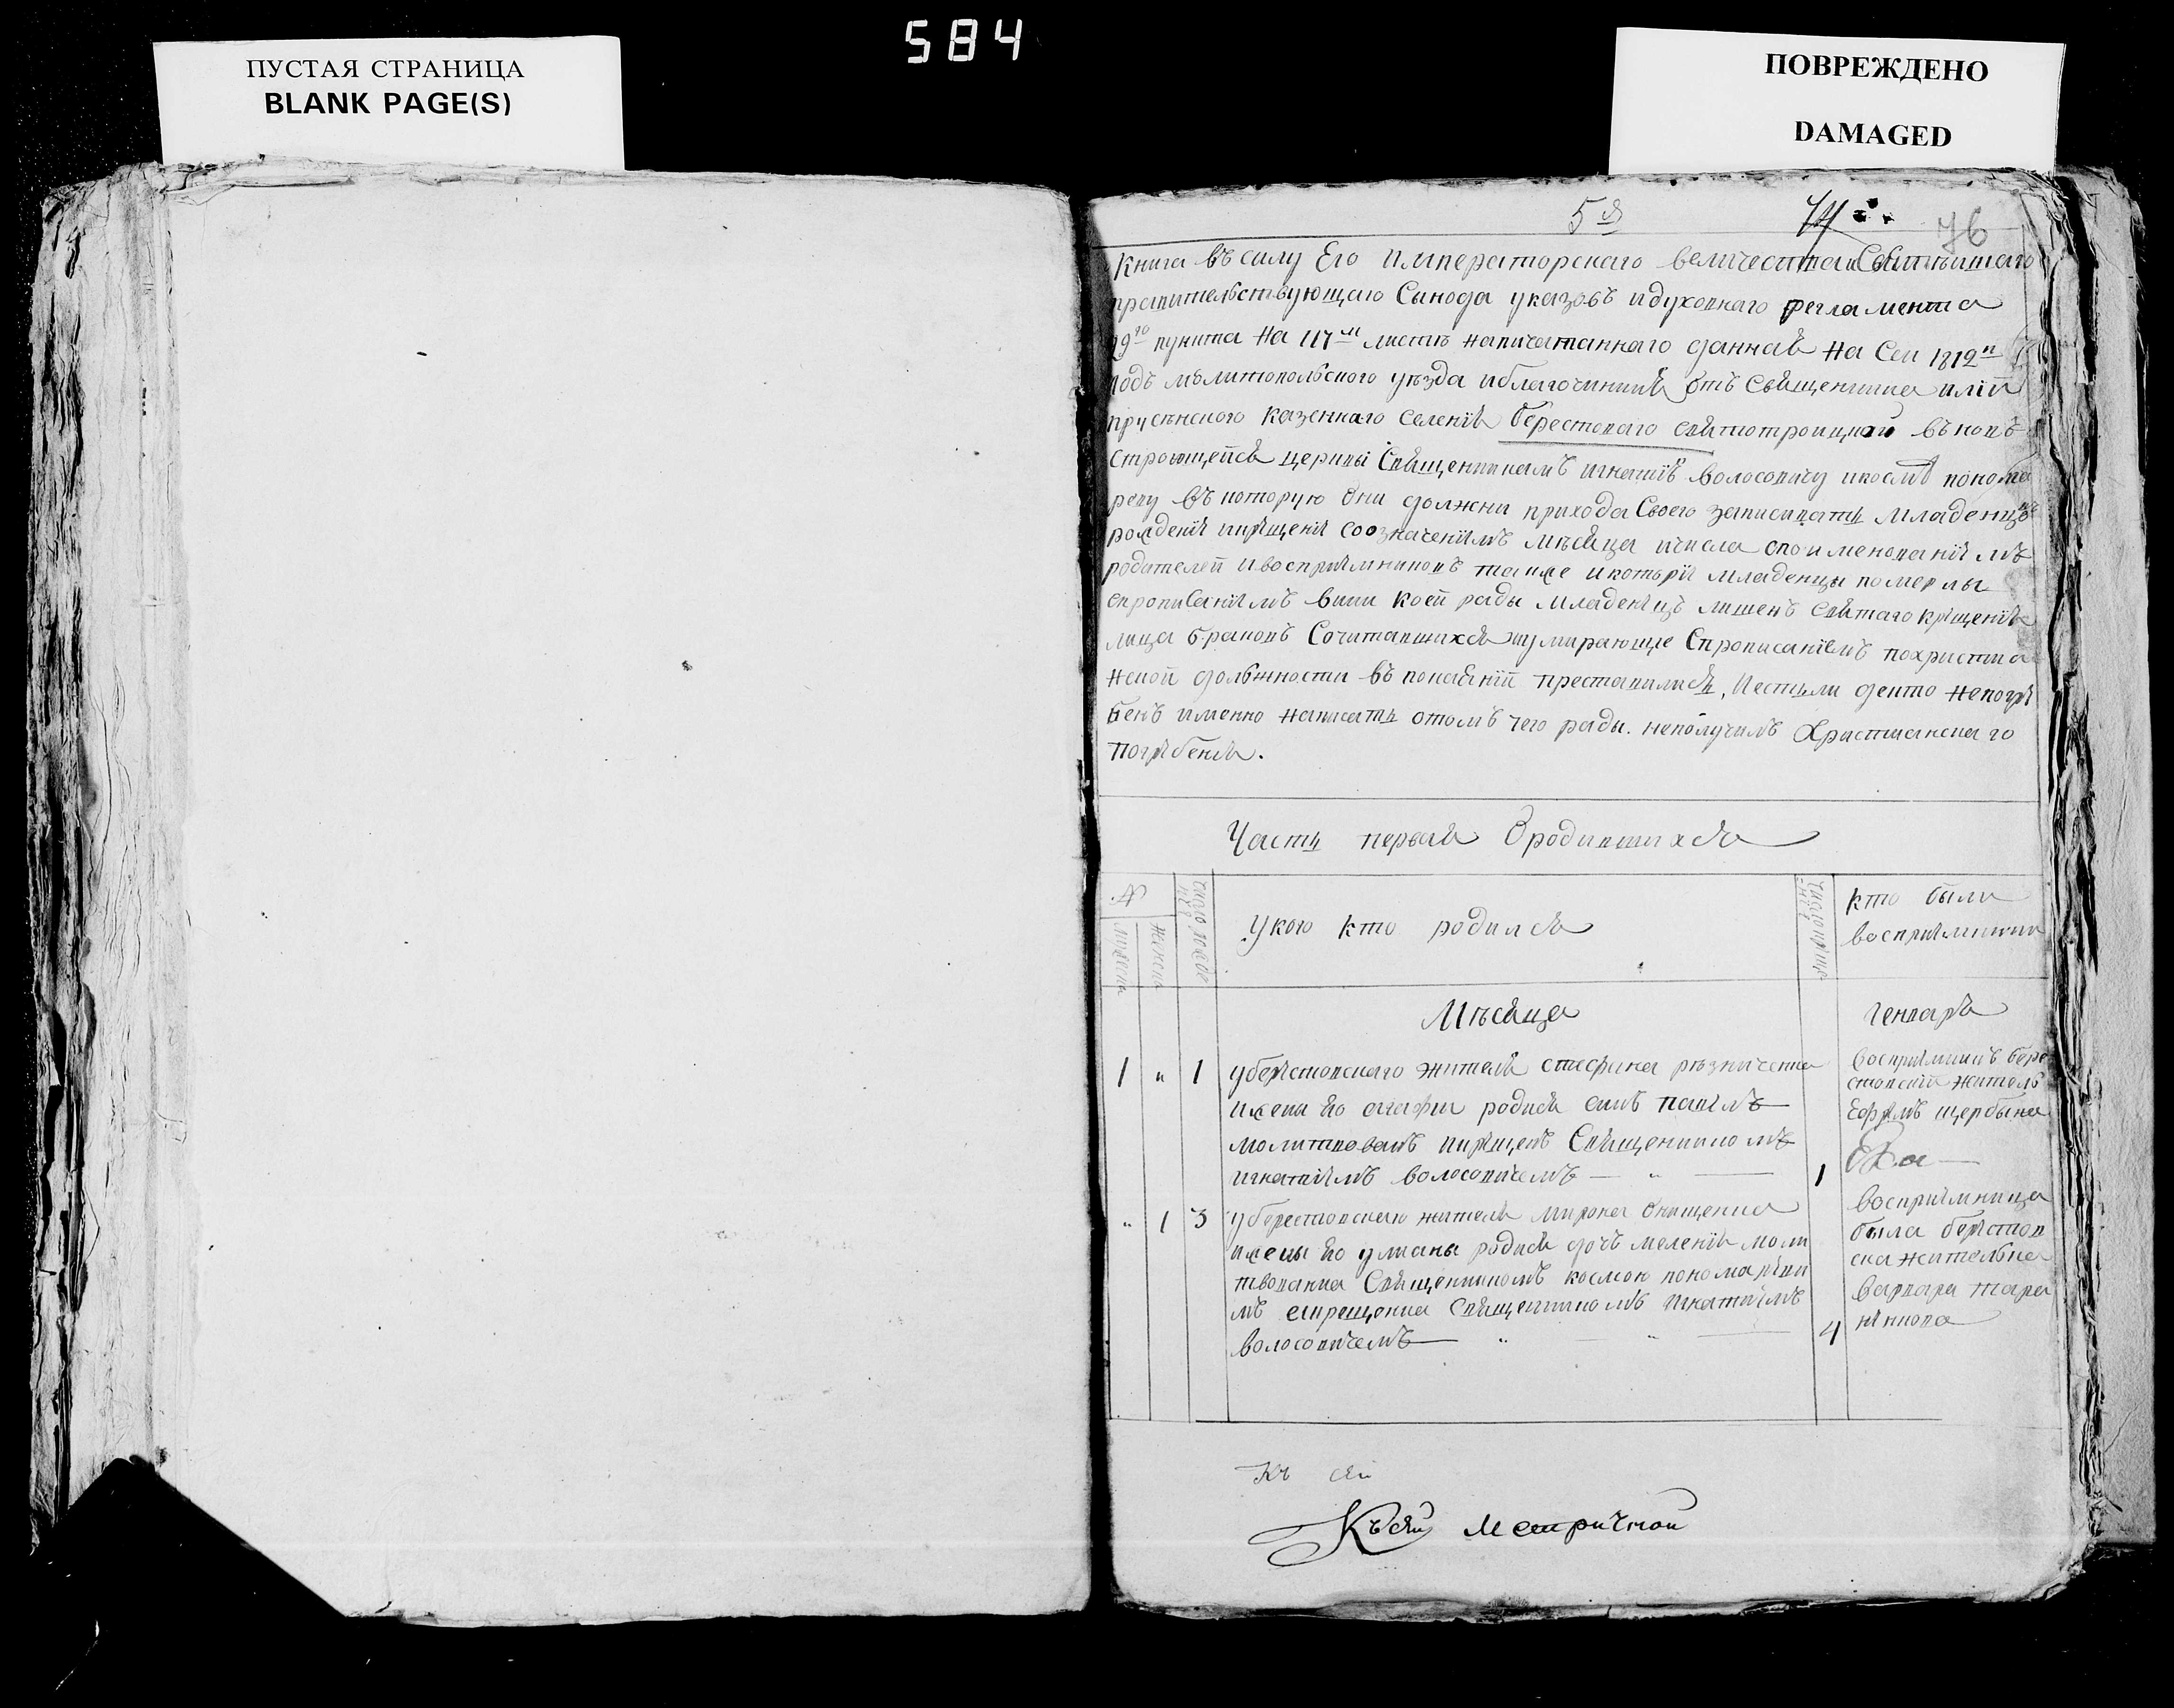 584
ПУСТАЯ СТРАНИЦА
BLANK PAGE(S)
ПОВРЕЖДЕНО
DAMAGED
5я
76
Книга въ силу Его императорскаго величества и Святѣйшаго
правительствующаго Сѵнода указовъ и духовнаго регламента
29го пункта на 117м листѣ напичатаннаго даннаѧ на Сей 1812й
годъ мѣлитопольского уѣзда и благочинниѧ отъ Свѧщенника
казеннаго Селениѧ берестоваго свѧтотроицкой въ новѣ
строющейсѧ церкви Свѧщенникамъ игнатию волосовичу и космѣ понома
реву въ которую они должни прихода Своего записивать младенцов
рождении и крѣщении со означениемъ мѣсѧца и числа споименованиемъ
родителей и восприемниковъ также и которіи младенцы померлы
спрописаниемъ вини коей рады младенецъ лишенъ свѧтаго крещениѧ
лица браковъ Сочитавшихсѧ и умирающие Спрописаниемъ похристиа
нской должности въ покаѧнии преставились, и естьли хто непогре
бенъ именно написать отомъ чего рады неполучилъ Христианскаго
погребениѧ.
Часть перваѧ О родившихсѧ
№
мужеска
женска
число роже
ний
У кого кто родилсѧ
число креще
ний
кто были
восприемники
Мѣсѧца
генварѧ
1 " 1 у берестовскаго жителѧ стефана рѣзниченка
и жены его агафии родисѧ синъ павелъ
молитвованъ и крещенъ Свѧщенникомъ
игнатиемъ волосовичемъ — " —
1
восприемникъ бере
стовский житель
Ефремъ щербина
" 1 3 у берестовскаго жителѧ мирона онищенка
и жены его улианы родисѧ дочъ меланиѧ моли
твованна Свѧщенникомъ космою пономареви
мъ а крещенна Свѧщенникомъ игнатиемъ
волосовичемъ — " — " —
4
восприемница
была берестов
ска жителька
варвара тара
ненкова
Къ сей
Къ сей метричной